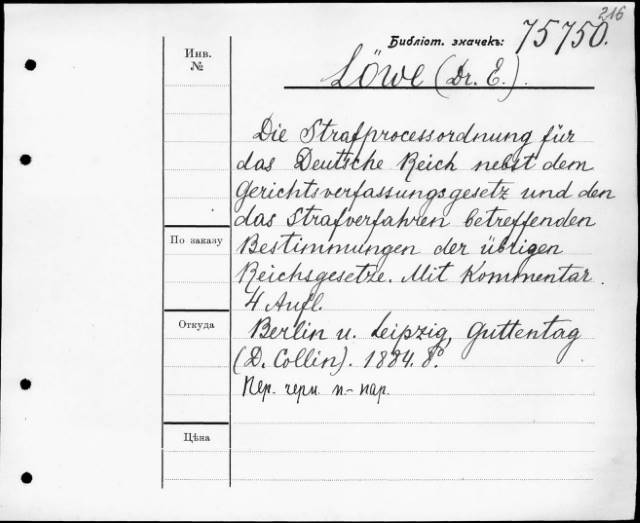 216
Библіот. значекъ: 75750.
Инв. №
Löwe (Dr. E.).
Die Strafprocessordnung für
das Deutsche Reich nebst dem
Gerichtsverfassungsgesetz und den
das Strafverfahren betreffenden
По заказу
Bestimmungen der übrigen
Reichsgesetze. Mit Kommentar.
4 Aufl.
Откуда
Berlin u. Leipzig, Guttentag
(D. Collin). 1884. 8°.
Пер. черн. п-пар.
Цѣна